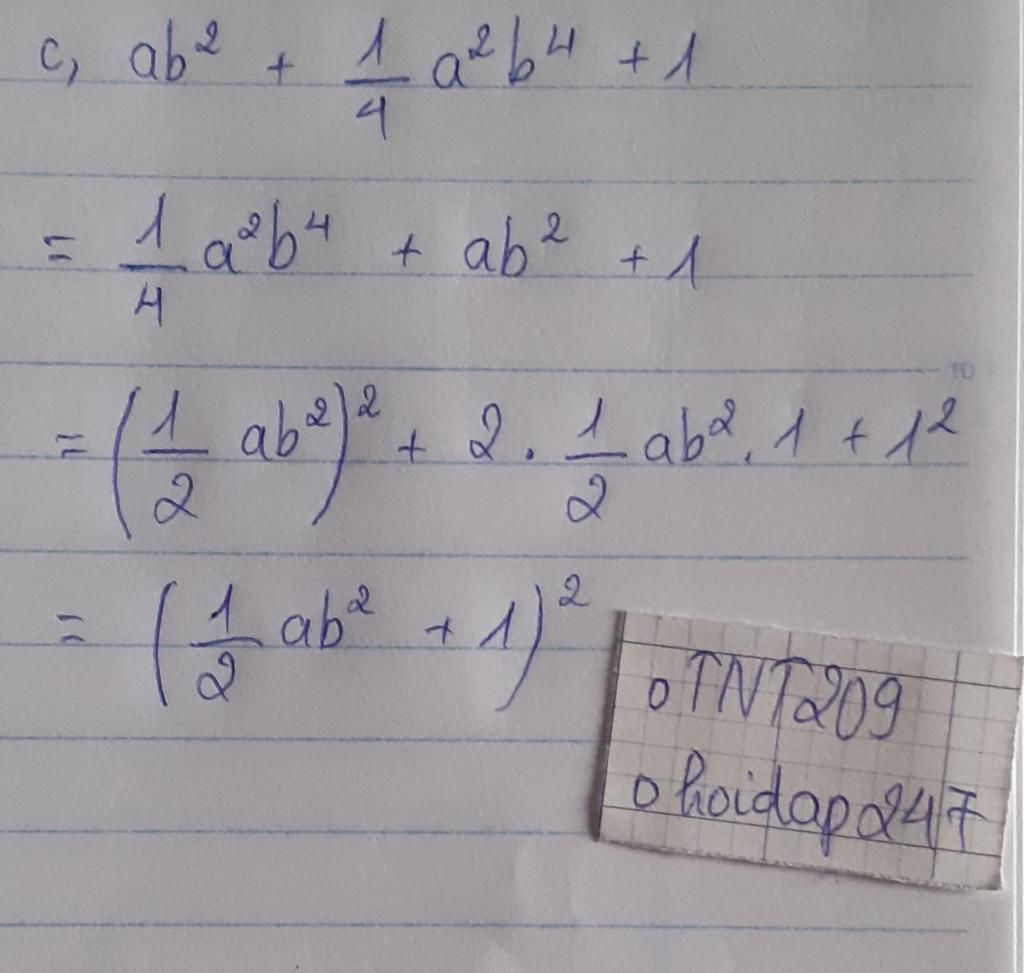 c, ab² + 1/4 a²b⁴ + 1
= 1/4 a²b⁴ + ab² + 1
10
= (1/2 ab²)² + 2 . 1/2 ab² . 1 + 1²
= (1/2 ab² + 1)²
o TNT209
o hoidap247